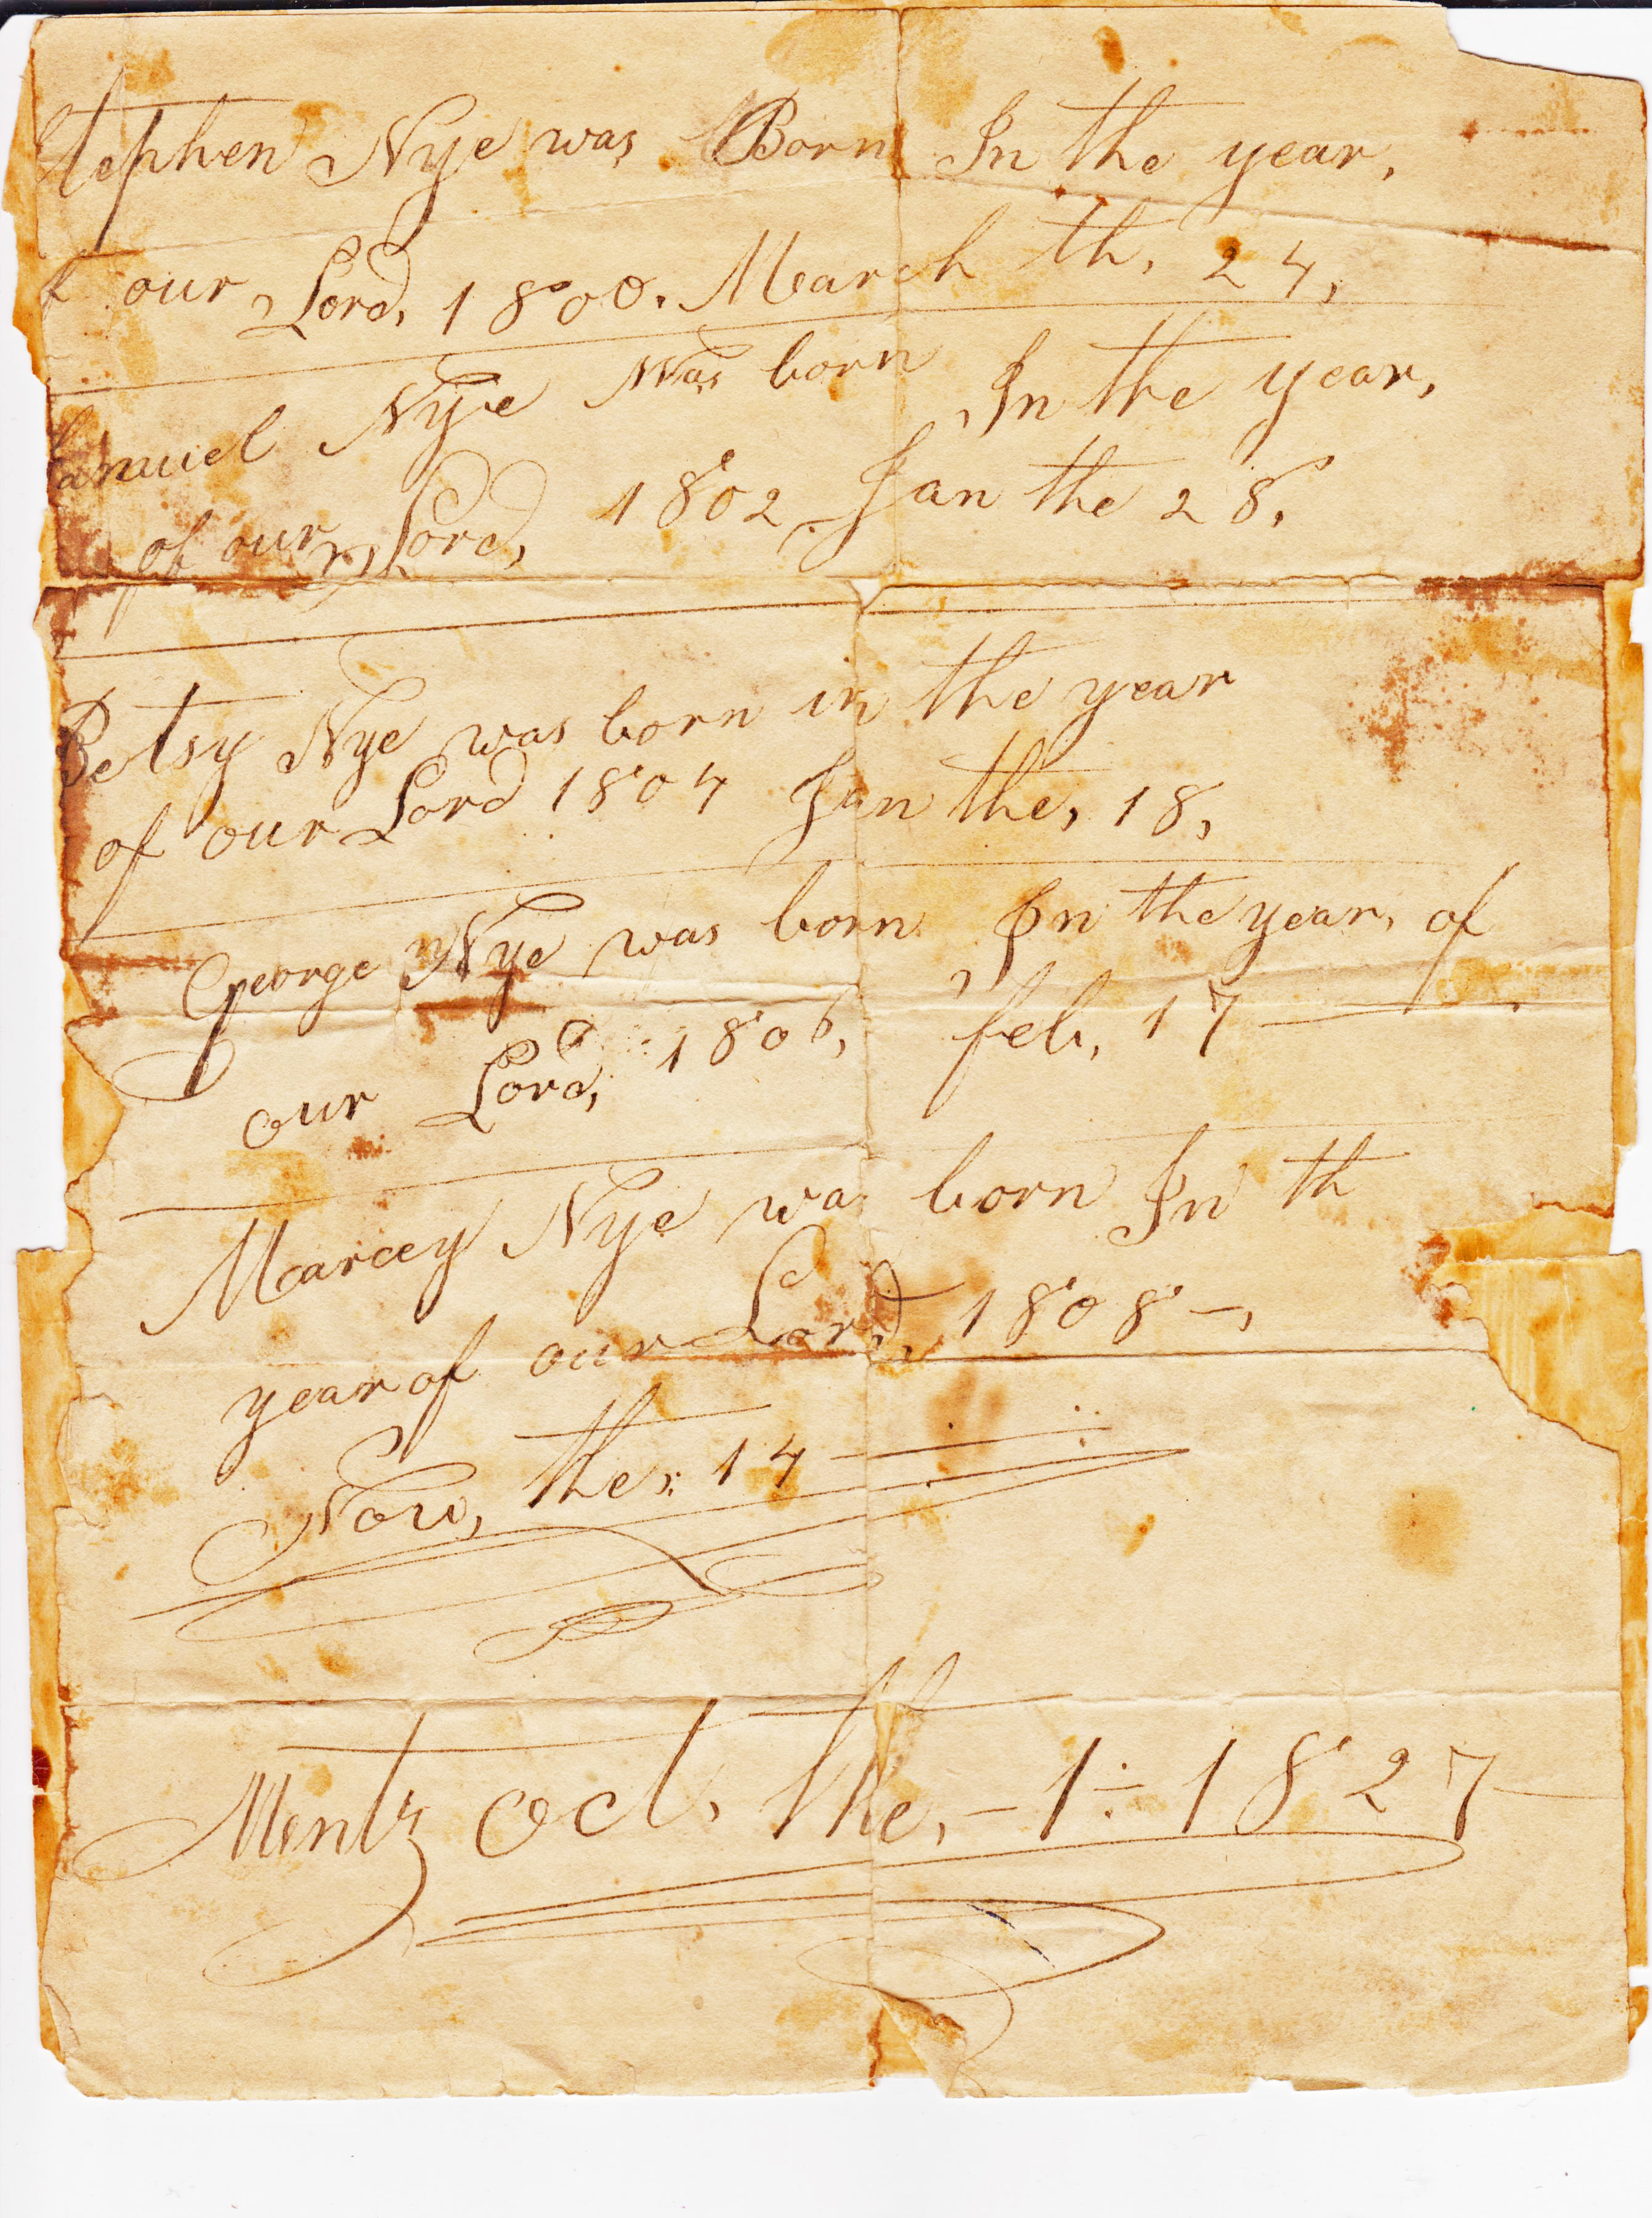 Stephen Nye was Born In the year,
of our Lord, 1800. March th, 24,
Samuel Nye Was born In the year,
of our Lord, 1802. Jan the 28,
Betsy Nye was born in the year
of our Lord 1804 Jan the, 18,
George Nye was born In the year, of
our Lord, 1806, feb, 17
Marcey Nye was born In th
year of our Lord, 1808 -,
Nov, the, 14
Mentz Oct, the, - 1 - 1827